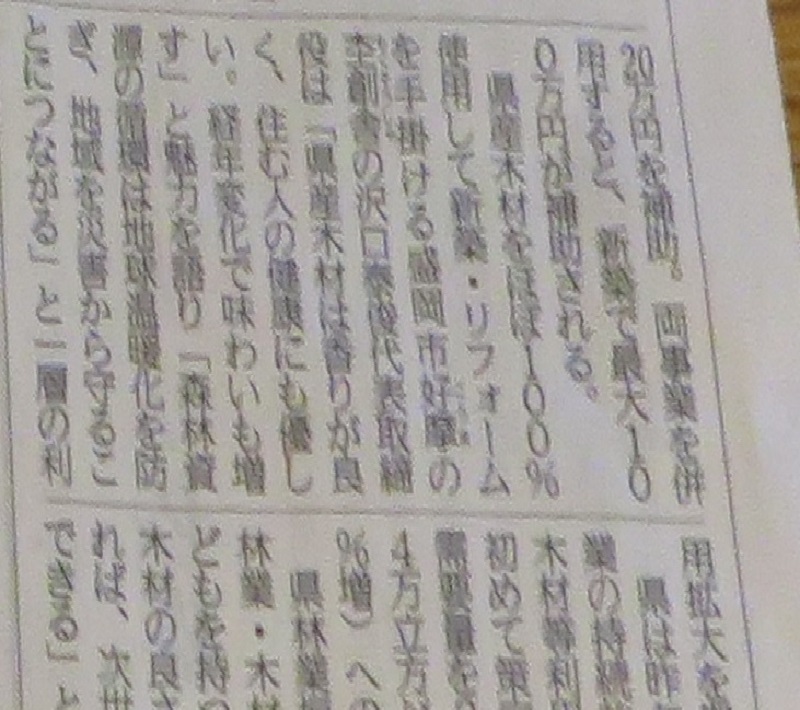 20万円を補助。両事業を併
用すると、新築で最大10
0万円が補助される。
県産木材をほぼ100％
使用して新築・リフォーム
を手掛ける盛岡市好摩の
創舎の沢口 代表取締
役は「県産木材は香りが良
く、住む人の健康にも優し
い。経年変化で味わいも増
す」と魅力を語り「森林資
源の循環は地球温暖化を防
ぎ、地域を災害から守るこ
とにつながる」と二重の利
用拡大を
県は昨
業の持続
木材等利
初めて策
需要量を
4万立方
％増）への
県林業
林業・木
どもを持
木材の良さ
れば、次世
できる」と